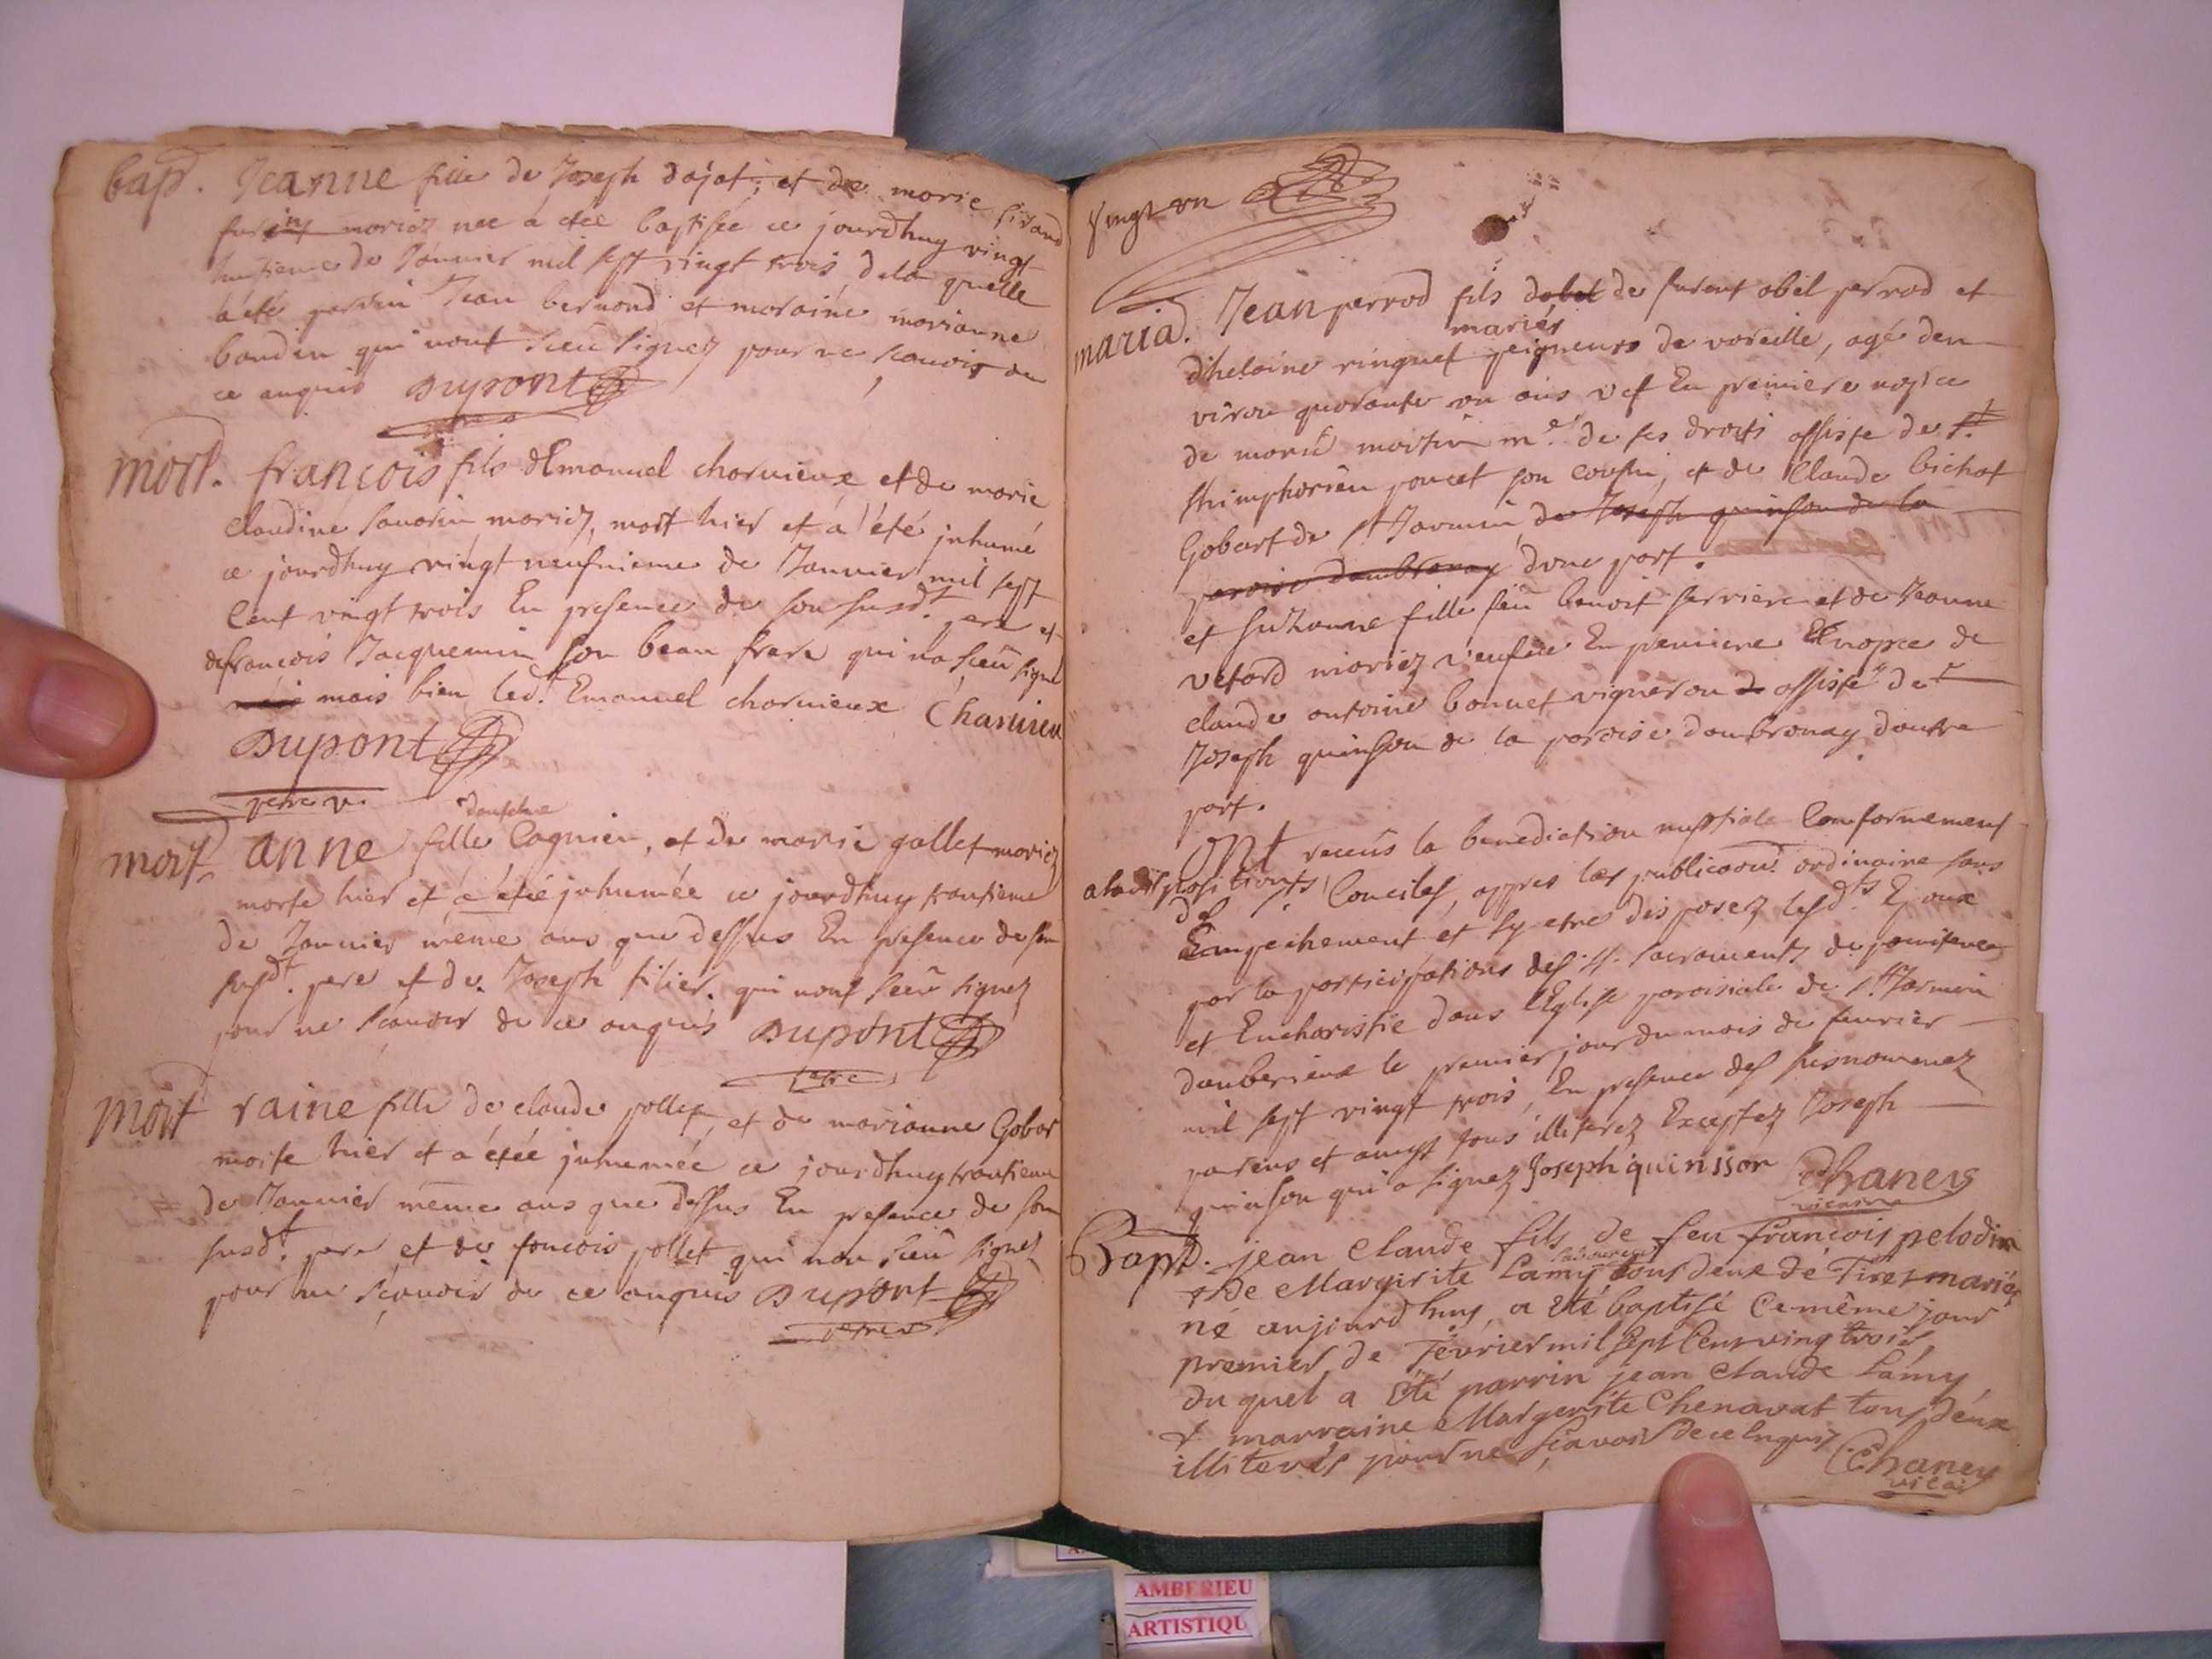 bap. Jeanne fille de Joseph dajot; et de marie sirand
mariez nee á etée baptisée ce jourdhuy vingt
huitieme de Janvier mil sept vingt trois dela quelle
a été parrin Jean bernond et maraine marianne
baudin qui nont sceu signer pour ne scavoir de
ce anquis Dupont
mort. francois fils dEmanuel charvieux et de marie
claudine savarin mariez, mort hier et a été inhumé
ce jourdhuy vingt neufnieme de Janvier mil sept
Cent vingt trois En presence de son susdt. pere et
de francois Jacquemin son beau frere qui na sceu signé
mais bien led. Emanuel charvieux Charvieu
Dupont
mort anne fille Cagnien, et de marie gallet mariez
morte hier et a étée inhumée ce jourdhuy trantieme
de Janvier même ans que dessus En presence de son
susdt. pere et de Joseph tilier. qui nont sceu signez
pour ne scavoir de ce anquis Dupont
ptre
mort raine fille de claude pollet, et de marianne Gobar
morte hier et a étée inhumée ce jourdhuy trantieme
de Janvier même ans que dessus En presence de son
susdt. pere et de francois pollet qui non sceu signez
pour ne scavoir de ce anquis Dupont
vingt un
maria. Jean perrod fils de furent abel perrod et
mariés
dhelaine ringuet peigneurs de vareille, agé den
viron quarante un ans vef En premiere nopce
de marie martin me. de ses droits assiste de st.
Shimphorien poncet son cousin, et de Claude bichat
Gobart de st Jarmin de Joseph quinson de la
paroise dambronay dune part.
et suzanne fille feu benoit ferriere et de Jeanne
vetard mariez veufve En premiere nopce de
claude antoine bonnet vigneron assistée de
Joseph quinson de la paroise dambronay dautre
part.
Ont receus la benediction nuptiale Conformement
aladispositions des Conciles, appres les publicaons ordinaire sans
Empechement et sy etre disposez lesdts Epoux
par la participations des ss. sacraments de penitence
et Eucharistie dans lEglise paroisiale de st Jarmin
danberieux le premier jour du mois de fevrier
mil sept vingt trois, En presence des susnommez
parens et amys tous illiterez Exceptez Joseph
quinson qui a signez Joseph quinsson Chaney
vicaire
Bapt. jean Claude fils de feu françois pelodin
laboureurs
& de Margirite Lamy tous deux de Tiret mariés
né aujourdhuy, a eté baptisé Ce même jour
premier de Fevrier mil sept Cent vingt trois
du quel a Eté parrin jean claude Lamy
& marraine Margerite Chenavat tous deux
illiterés pour ne sçavoir de ce Enquis Chaney
vicai
AMBERIEU
ARTISTIQU